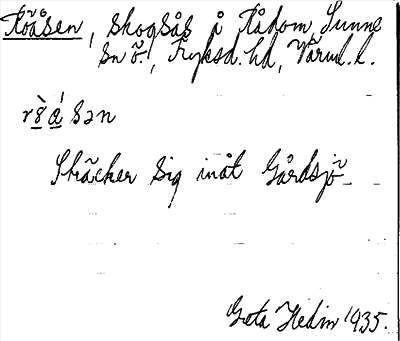 Röåsen, skogsås å Rådom, Sunne
sn ö., Fryksd. hd, Värml. l.
rö̀ắsən
Sträcker sig inåt Gårdsjö
Gota Hedin 1935.